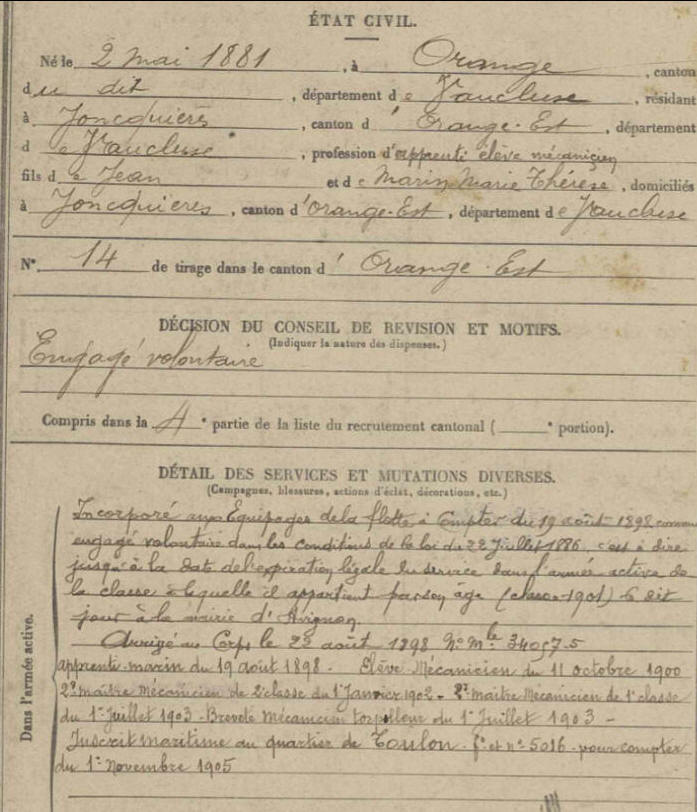 ÉTAT CIVIL.
Né le 2 mai 1881, à Orange, canton
du dit, département de Vaucluse, résidant
à Joncquières, canton d'Orange-Est, département
de Vaucluse, profession d'apprenti élève mécanicien
fils de Jean et de Marin Marie Thérèse, domiciliés
à Joncquieres, canton d'Orange-Est, département de Vaucluse
N° 14 de tirage dans le canton d'Orange-Est
DÉCISION DU CONSEIL DE REVISION ET MOTIFS.
(Indiquer la nature des dispenses.)
Engagé volontaire
Compris dans la 4e partie de la liste du recrutement cantonal ( e portion).
DÉTAIL DES SERVICES ET MUTATIONS DIVERSES.
(Campagnes, blessures, actions d'éclat, décorations, etc.)
Dans l'armée active.
Incorporé aux Equipages de la flotte à compter du 19 août 1898 comme
engagé volontaire dans les conditions de la loi du 22 Juillet 1886, c'est à dire
jusqu'à la date de l'expiration légale du service dans l'armée active de
la classe à lequelle il appartient par son âge (classe 1901) le dit
jour à la mairie d'Avignon.
Arrivé au Corps le 23 août 1898 N° Mle 34057-5
apprenti-marin du 19 août 1898. Elève Mécanicien du 11 octobre 1900
2e maître Mécanicien de 2e classe du 1er Janvier 1902 - 2e maître Mécanicien de 1e classe
du 1er Juillet 1903 - Breveté Mécanicien torpilleur du 1er Juillet 1903 -
Inscrit maritime au quartier de Toulon. f° et n° 5016 - pour compter
du 1er Novembre 1905